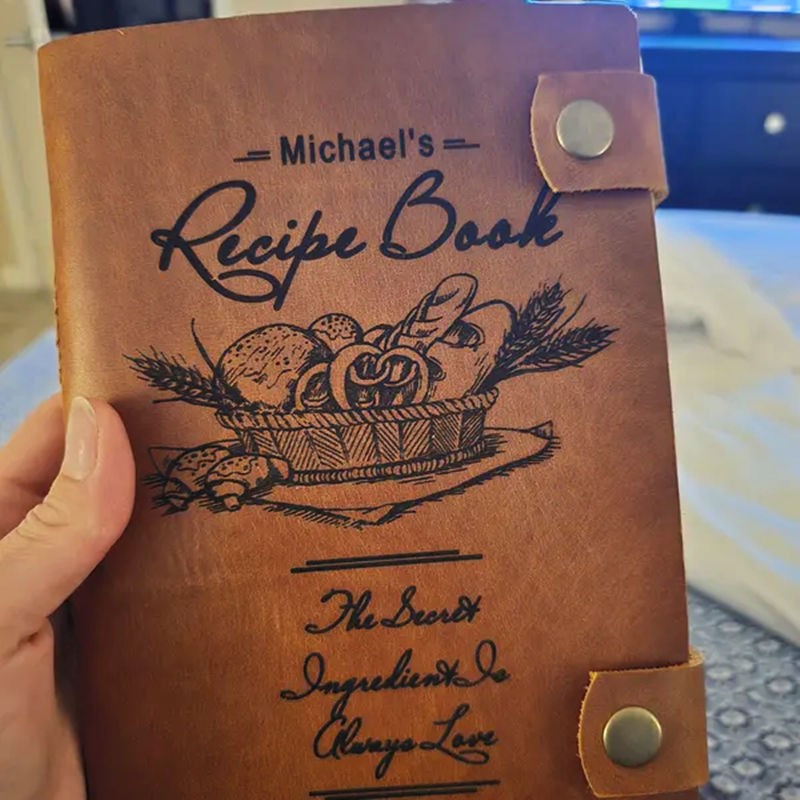 Michael's
Recipe Book
The Secret
Ingredient Is
Always Love